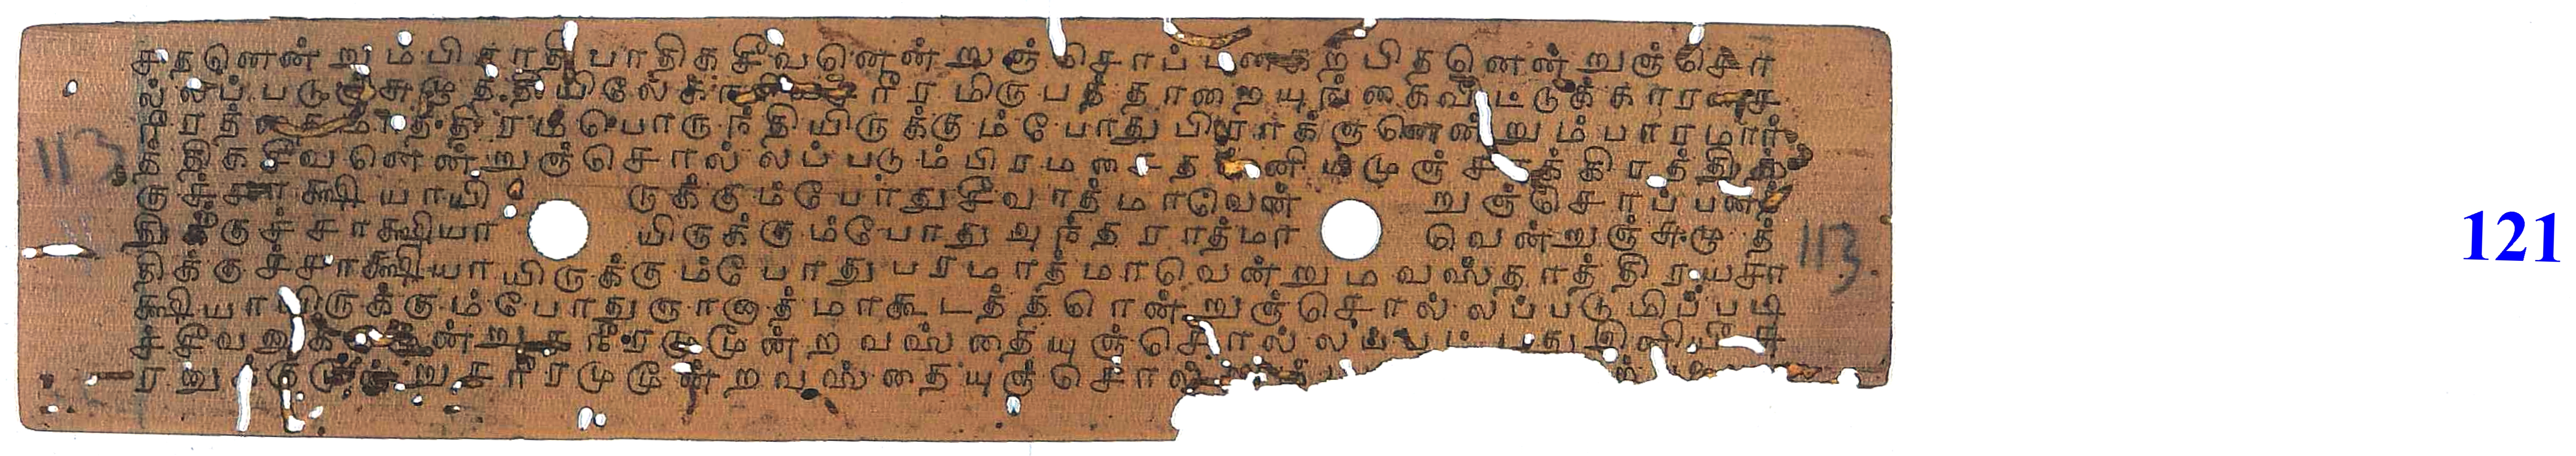 சதனென் றும்பிசாதி பாதிகசீவனென் றுஞ்சொப்பனகற்பிதனென் றுஞ்சொ
ல்லப்படுஞ்சுழுத்தியிலே சரீரமிருபத்தாறையுங்கைவிட்டுக்காரணச
ரீரத் மாத்திரம்பொருந்தியிருக்கும்போதுபிராக்ஞனென் றும்பாரமார்
த்திகசீவனென் றுஞ்சொல்லப்படும்பிரம சாக்கிரத்தி
குச்சாக்ஷியாயி ருக்கும்போதுசீவாத்மாவென் றுஞ்சொப்பனத்
திக்குச்சாக்ஷியா யிருக்கும்போதுஅந்தராத்மா வென்றுஞ்சுழுத்
திக்குச்சாக்ஷியாயிருக்கும்போதுபரமாத்மாவென்றுமவஸ்தாத்திரயசா
க்ஷியாயிருக்கும்போதுஞானாத்மாகூடத்தினென் றுஞ்சொல்லப்படுமிப்படி
ச்சீவனுக் மூன்றுசரீரமுமூன்றவஸ்தையுஞ்சொல்லப்பட்டதுஇனியீசு
ரனுக்குமூன்றுசரீரமுமூன்றவஸ்தையுஞ்சொல்
113
113
121